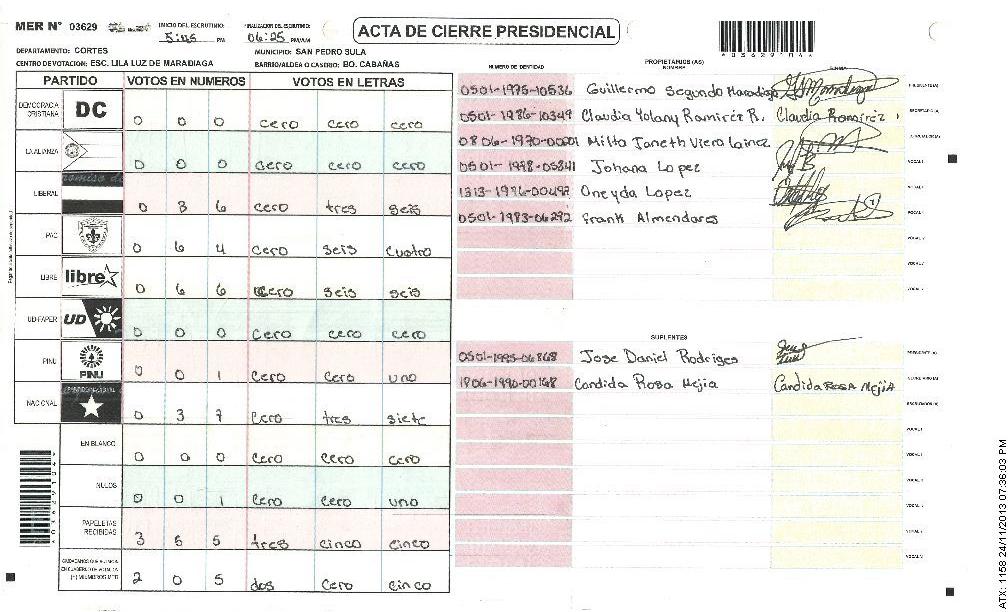 MER N° 03629
INICIO DEL ESCRUTINIO:
5:45 PM
FINALIZACION DEL ESCRUTINIO:
06:25 PM/AM
ACTA DE CIERRE PRESIDENCIAL
DEPARTAMENTO: CORTES
MUNICIPIO: SAN PEDRO SULA
CENTRO DE VOTACION: ESC. LILA LUZ DE MARADIAGA
BARRIO/ALDEA O CASTRO: BO. CABAÑAS
PARTIDO VOTOS EN NUMEROS VOTOS EN LETRAS
DEMOCRACIA CRISTIANA DC 0 0 0 cero cero cero
LA ALIANZA 0 0 0 cero cero cero
LIBERAL 0 3 6 cero tres seis
PAC 0 6 4 cero seis cuatro
LIBRE libre 0 6 6 cero seis seis
UD-FAPER UD 0 0 0 cero cero cero
PINU PINU 0 0 1 cero cero uno
NACIONAL 0 3 7 cero tres siete
EN BLANCO 0 0 0 cero cero cero
NULOS 0 0 1 cero cero uno
PAPELETAS RECIBIDAS 3 5 5 tres cinco cinco
2 0 5 dos cero cinco
NUMERO DE IDENTIDAD
PROPIETARIOS (AS)
NOMBRE
FIRMA
0501-1975-10536 Guillermo Segundo Maradiaga PRESIDENTE (A)
0501-1986-10349 Claudia Yolany Ramirez R. Claudia Ramirez SECRETARIO (A)
0806-1970-00601 Milta Janeth Viera Lainez
0501-1998-05341 Johana Lopez VOCAL I
1313-1976-00497 Oneyda Lopez
0501-1983-06292 Frank Almendares
SUPLENTES
0501-1995-06868 Jose Daniel Rodriges PRESIDENTE (A)
1806-1990-00168 Candida Rosa Mejia Candida ROSA Mejia SECRETARIO (A)
ATX: 1158 24/11/2013 07:36:03 PM